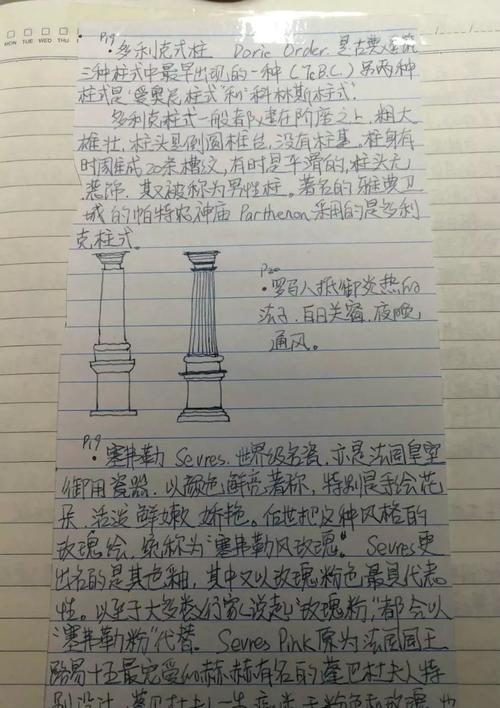 MON TUE WED THU
P19
·多利克式柱 Doric Order 是古典建筑
三种柱式中最早出现的一种(7c B.C.)另两种
柱式是“爱奥尼柱式”和“科林斯柱式”
多利克柱式一般都建在阶座之上,粗大
雄壮,柱头是倒圆椎台,没有柱基。柱身有
时周雕成20条槽纹,有时是平滑的,柱头无
装饰,其又被称为男性柱。著名的雅典卫
城的帕特农神庙 Parthenon 采用的是多利
克柱式。
P20
·罗马人抵御炎热的
法子,白日关窗,夜晚
通风。
P19
·塞弗勒 Sevres,世界级名瓷,亦是法国皇室
御用瓷器,以颜色鲜亮著称,特别是手绘花
朵,活泼鲜嫩娇艳。后世把这种风格的
玫瑰绘,统称为“塞弗勒风玫瑰”。Sevres更
出名的是其色釉,其中又以玫瑰粉色最具代表
性。以至于大多数行家说起“玫瑰粉”,都会以
“塞弗勒粉”代替。Sevres Pink 原为法国国王
路易十五最宠爱的赫赫有名的蓬巴杜夫人特
别设计,蓬巴杜夫人一生